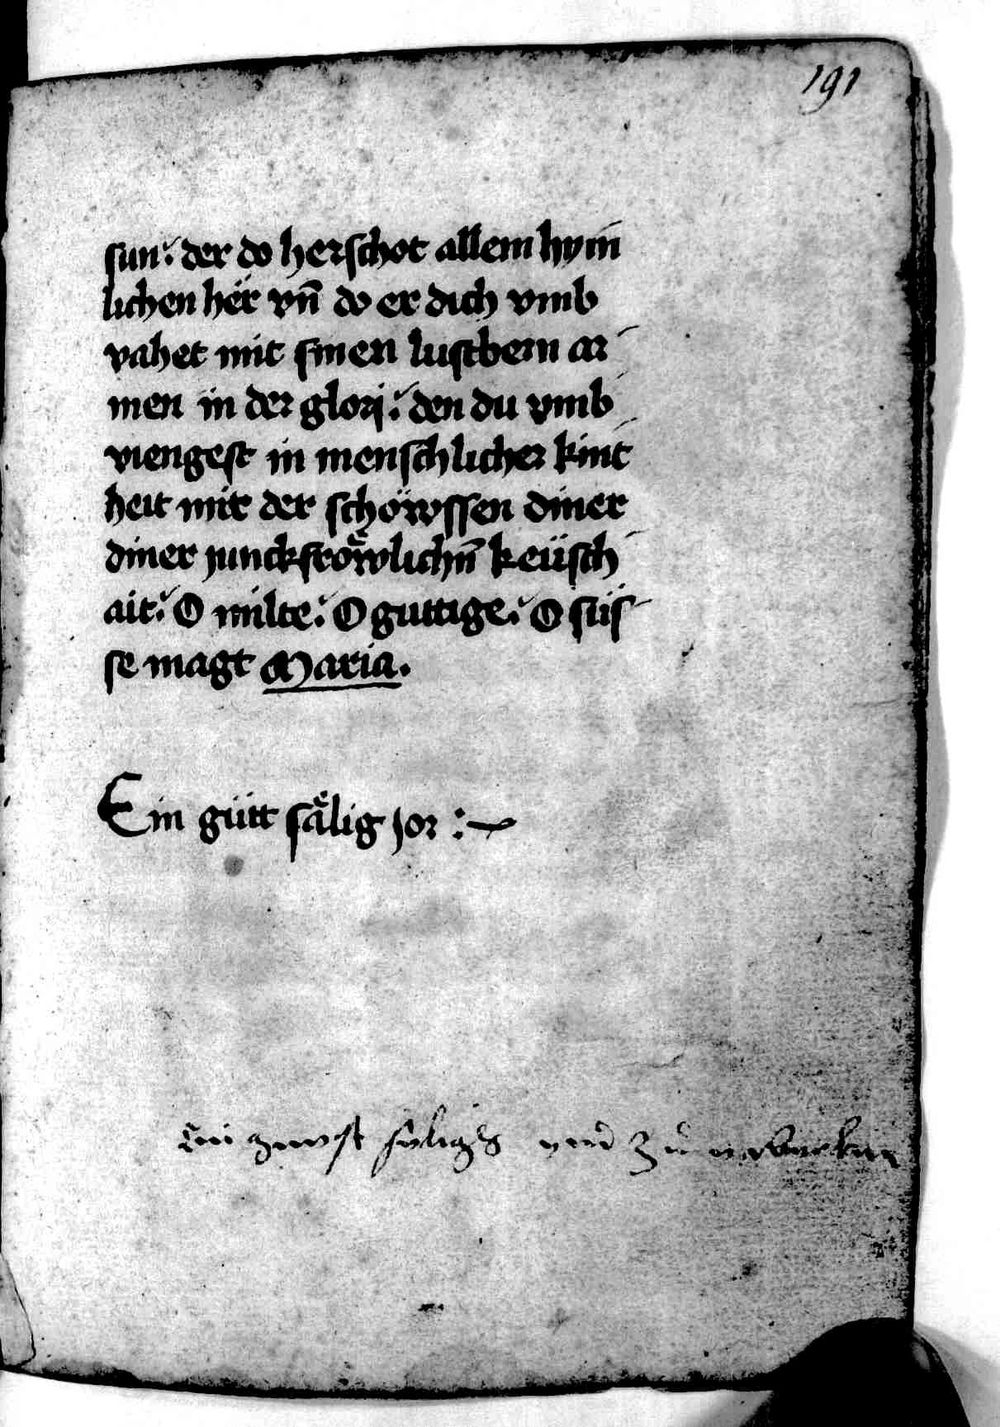 191
sun : der do herschot allem hym
lichen her vn̄ do er dich vmb
vahet mit sinen lustbern ar
men in der glorj : den du vmb
viengest in menschlicher kint
heit mit der schöwssen diner
diner junckfröwlichn̄ keüsch
ait : O milte : O guttige : O süs
se magt Maria .
Ein gütt sälig jor :~
Ein seligs vnd zu